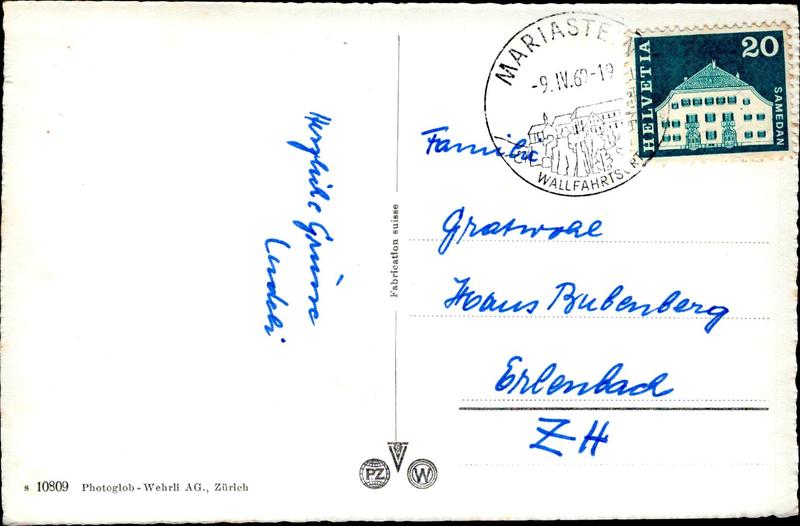 Herzliche Grüsse
MARIASTEIN
-9.IV.69-19
WALLFAHRTSORT
HELVETIA
20
SAMEDAN
Familie
Gratwohl
Haus Bubenberg
Erlenbach
ZH
Fabrication suisse
PZ
W
s 10809 Photoglob-Wehrli AG., Zürich